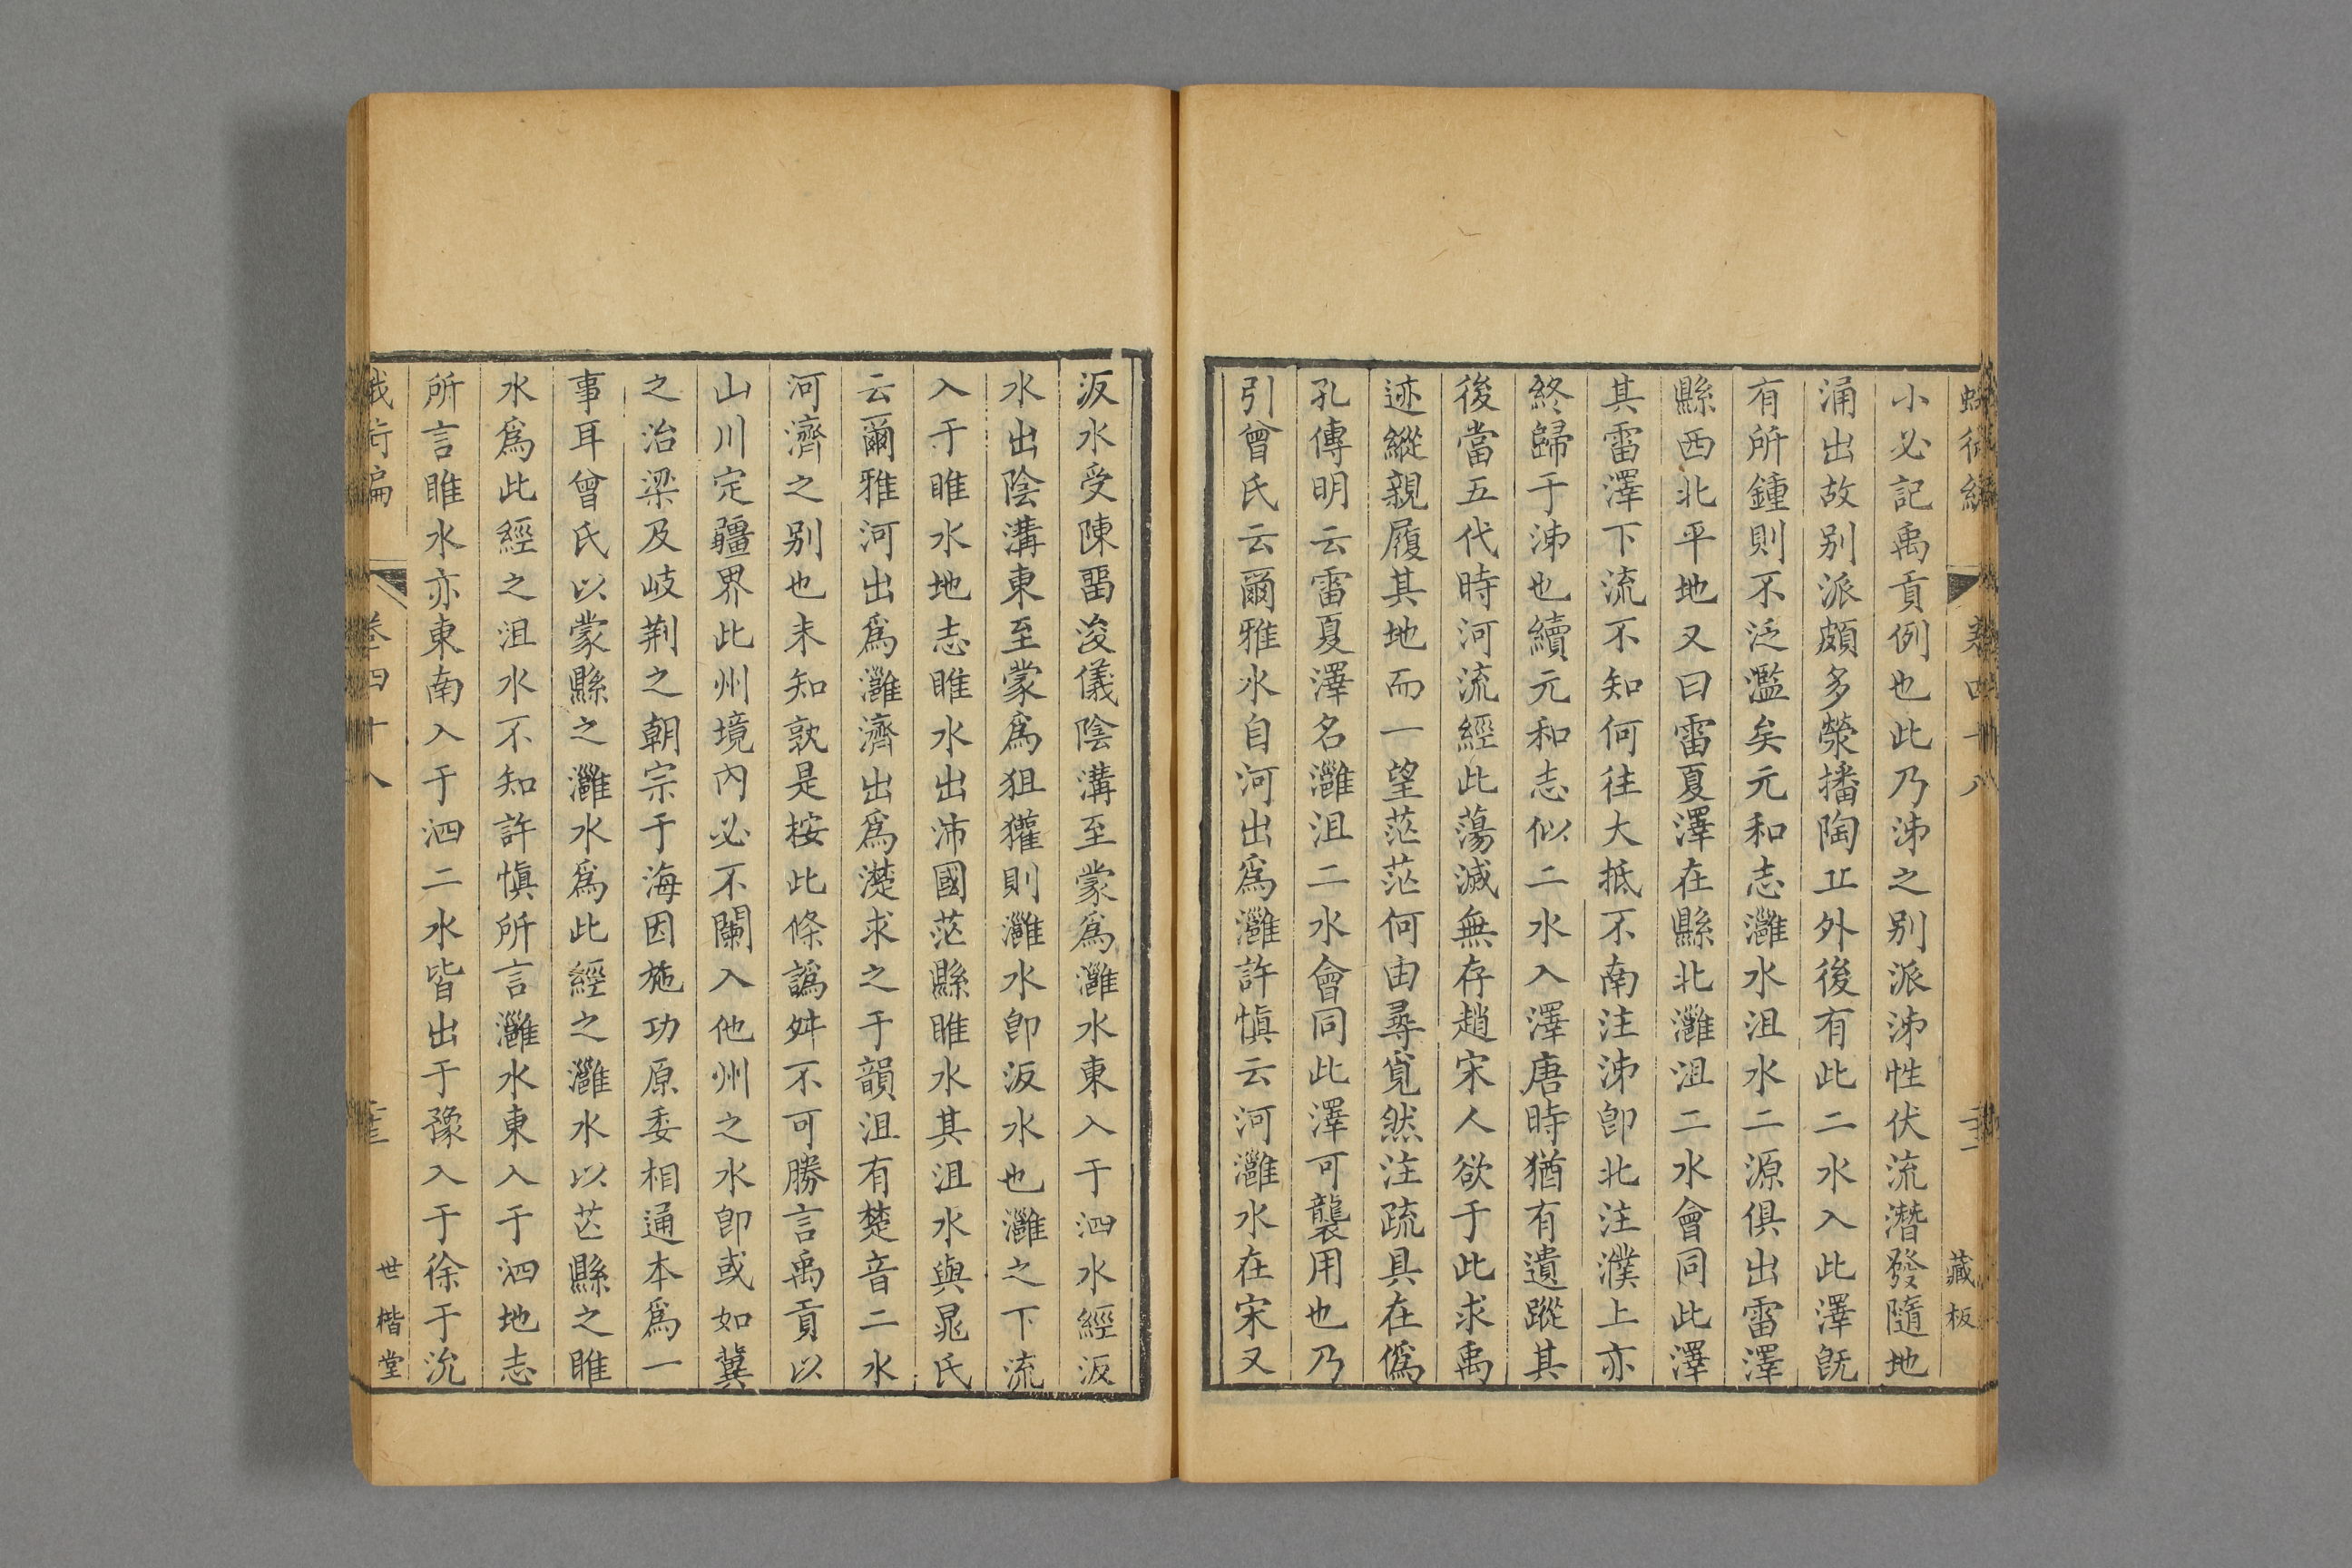 小必記禹貢例也此乃泲之别派泲性伏流潛發隨地
涌出故别派頗多滎播陶丘外後有此二水入此澤旣
有所鍾則不泛濫矣元和志灉水沮水二源俱出雷澤
縣西北平地又曰雷夏澤在縣北灉沮二水會同此澤
其雷澤下流不知何往大抵不南注泲卽北注濮上亦
終歸于泲也續元和志似二水入澤唐時猶有遺蹤其
後當五代時河流經此蕩滅無存趙宋人欲于此求禹
迹縱親履其地而一望茫茫何由尋覓然注疏具在僞
孔傳明云雷夏澤名灉沮二水會同此澤可襲用也乃
引曾氏云爾雅水自河出爲灉許愼云河灉水在宋又
汳水受陳畱浚儀陰溝至蒙爲灉水東入于泗水經汳
水出陰溝東至蒙爲狙獾則灉水卽汳水也灉之下流
入于睢水地志睢水出沛國茫縣睢水其沮水與晁氏
云爾雅河出爲灉濟出爲濋求之于韻沮有楚音二水
河濟之别也未知孰是按此條譌舛不可勝言禹貢以
山川定疆界此州境內必不闌入他州之水卽或如冀
之治梁及岐荆之朝宗于海因施功原委相通本爲一
事耳曾氏以蒙縣之灉水爲此經之灉水以芒縣之睢
水爲此經之沮水不知許愼所言灉水東入于泗地志
所言睢水亦東南入于泗二水皆出于豫入于徐于沇
卷四十八
世楷堂
藏板